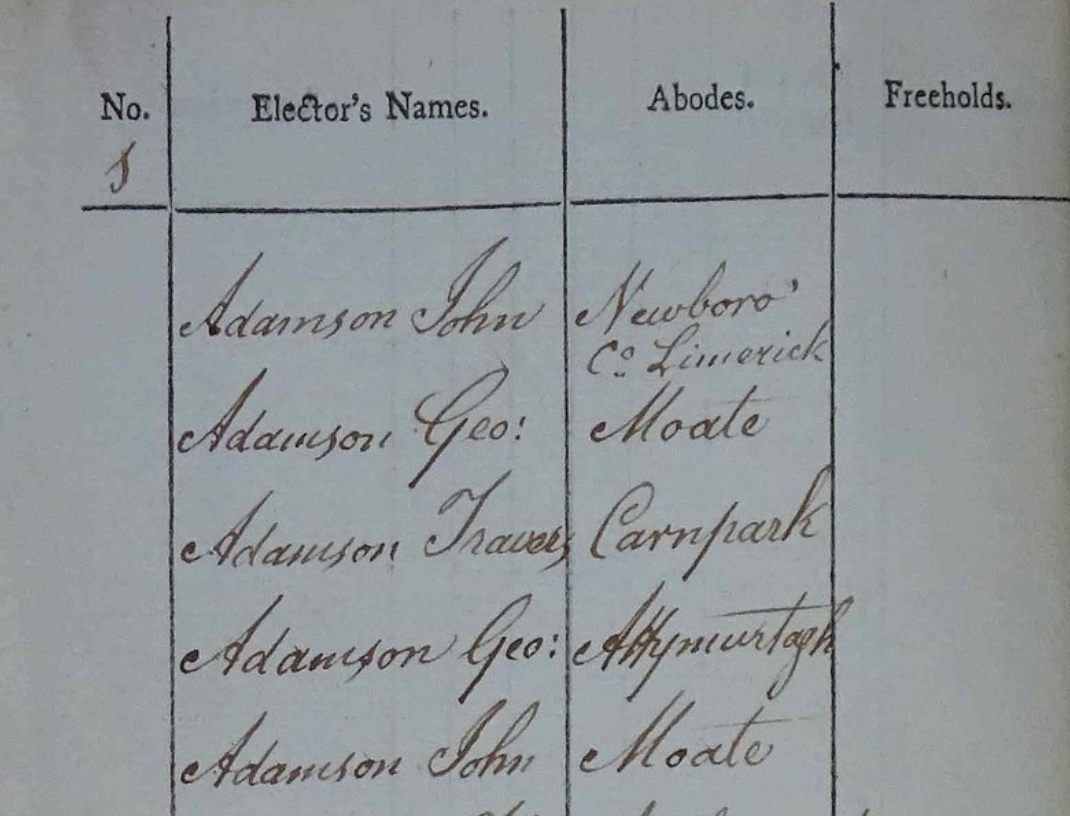 No. Elector's Names. Abodes. Freeholds.
Adamson John Newboro'
Co. Limerick
Adamson Geo: Moate
Adamson Travers Carnpark
Adamson Geo: Attymurtagh
Adamson John Moate